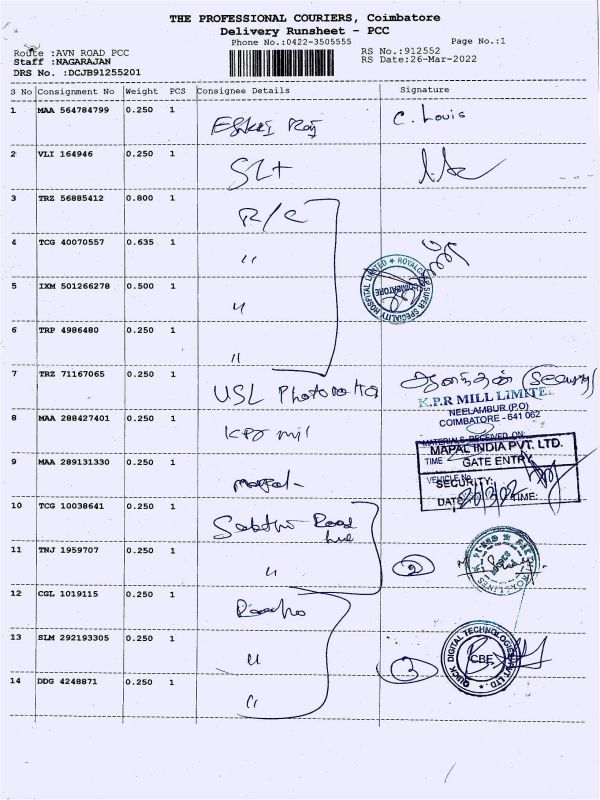 THE PROFESSIONAL COURIERS, Coimbatore
Delivery Runsheet - PCC
Phone No.:0422-3505555
Page No.:1
Route :AVN ROAD PCC
RS No.:912552
Staff :NAGARAJAN
RS Date:26-Mar-2022
DRS No. :DCJB91255201
S No Consignment No Weight PCS Consignee Details Signature
1 MAA 564784799 0.250 1 C. Louis
2 VLI 164946 0.250 1
3 TRZ 56885412 0.800 1 R/C
4 TCG 40070557 0.635 1 "
5 IXM 501266278 0.500 1 "
6 TRP 4986480 0.250 1 "
SUPER SPECIALITY HOSPITAL LIMITED
COIMBATORE
7 TRZ 71167065 0.250 1 USL ஆனந்தன் (Security)
K.P.R MILL LIMITED
NEELAMBUR (P.O)
COIMBATORE - 641 062
8 MAA 288427401 0.250 1 KPR mil
MATERIALS RECEIVED ON:
MAPAL INDIA PVT. LTD.
TIME GATE ENTRY
9 MAA 289131330 0.250 1 mapal
VEHICLE No.
SECURITY:
DATE TIME:
10 TCG 10038641 0.250 1 Road
line
11 TNJ 1959707 0.250 1 " 2
12 CGL 1019115 0.250 1
13 SLM 292193305 0.250 1 "
QUICK DIGITAL TECHNOLOGIES PVT LTD.
CBE
14 DDG 4248871 0.250 1 "